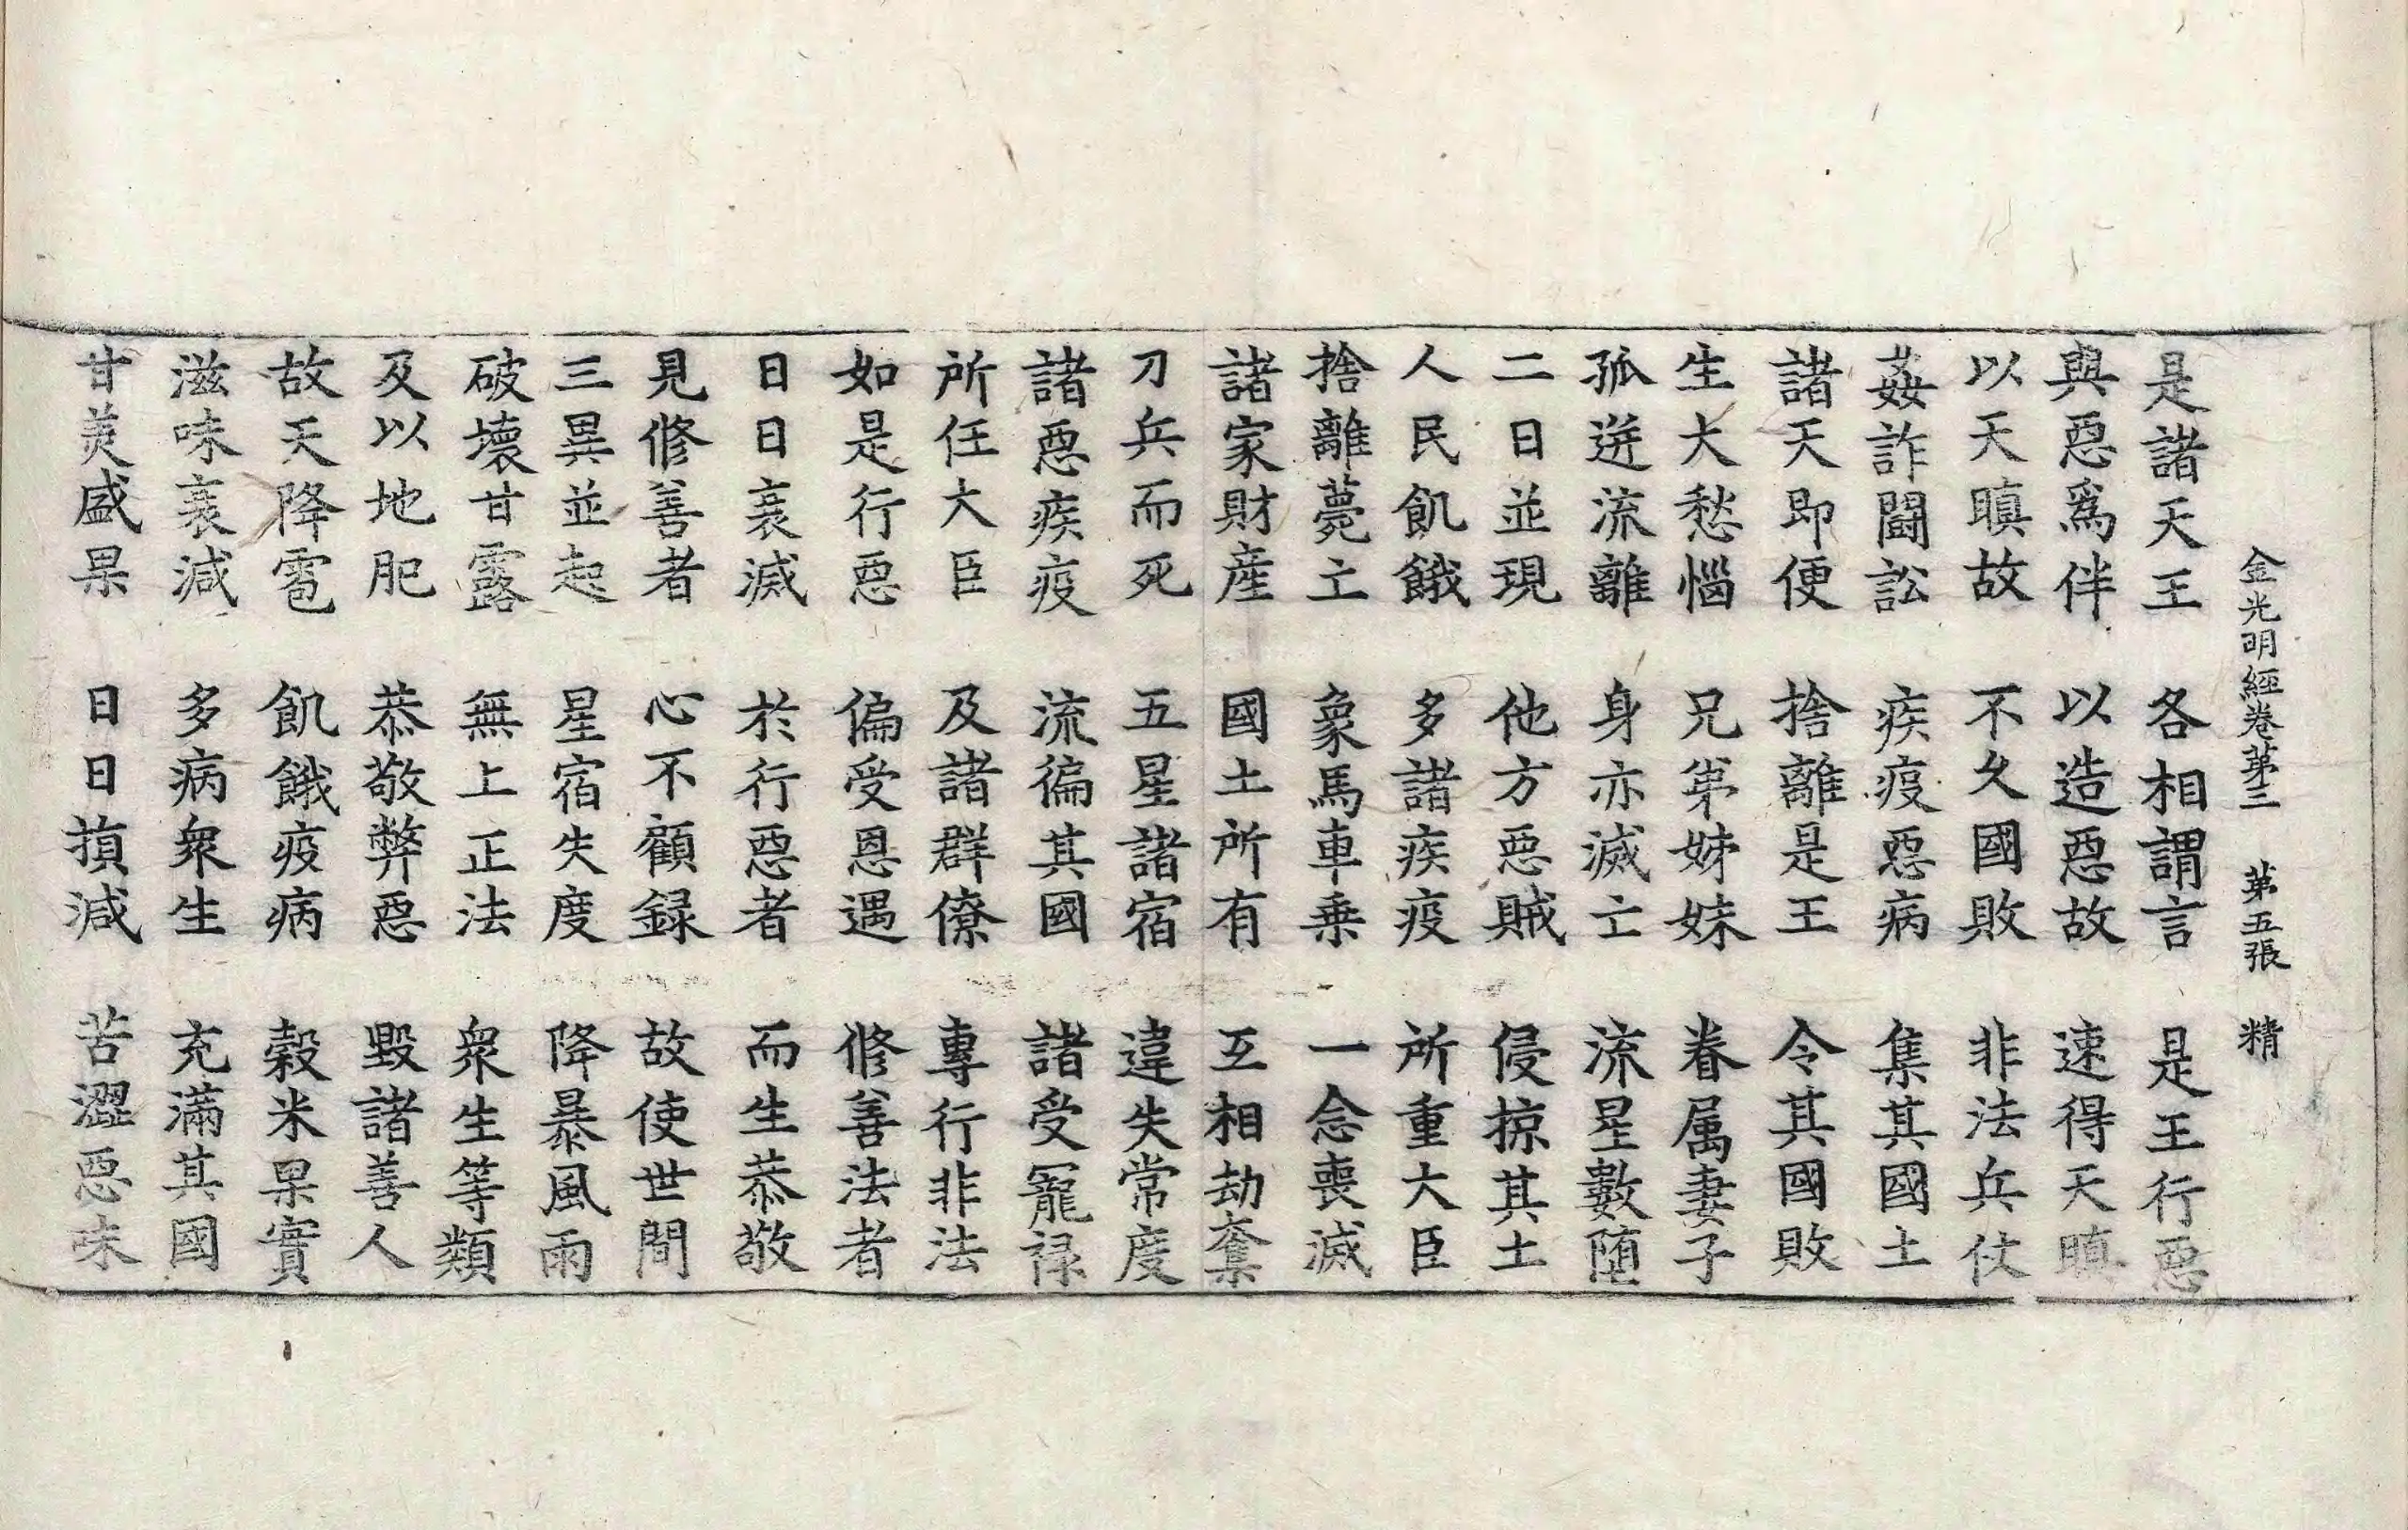 金光明經卷第三 第五張 精
是諸天王 各相謂言 是王行惡
與惡爲伴 以造惡故 速得天瞋
以天瞋故 不久國敗 非法兵仗
姦詐鬪訟 疾疫惡病 集其國土
諸天即便 捨離是王 令其國敗
生大愁惱 兄弟姊妹 眷属妻子
孤迸流離 身亦滅亡 流星數墮
二日並現 他方惡賊 侵掠其土
人民飢餓 多諸疾疫 所重大臣
捨離薨亡 象馬車乗 一念喪滅
諸家財産 國土所有 互相劫奪
刀兵而死 五星諸宿 違失常度
諸惡疾疫 流徧其國 諸受寵禄
所任大臣 及諸群僚 專行非法
如是行惡 偏受恩遇 修善法者
日日衰滅 於行惡者 而生恭敬
見修善者 心不顧録 故使世間
三異並起 星宿失度 降暴風雨
破壞甘露 無上正法 衆生等類
及以地肥 恭敬弊惡 毀諸善人
故天降雹 飢餓疫病 榖米果實
滋味衰減 多病衆生 充滿其國
甘美盛果 日日損減 苦澀惡味